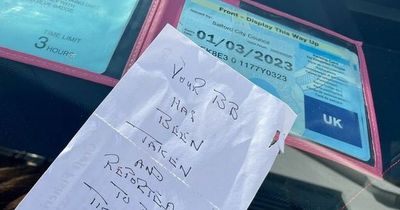 TIME LIMIT
3 HOURS
Front - Display This Way Up
Salford City Council
01/03/2023
0 1177Y0323
UK
YOUR BB
HAS
BEEN
TAKEN
AND
REPORTED
TO